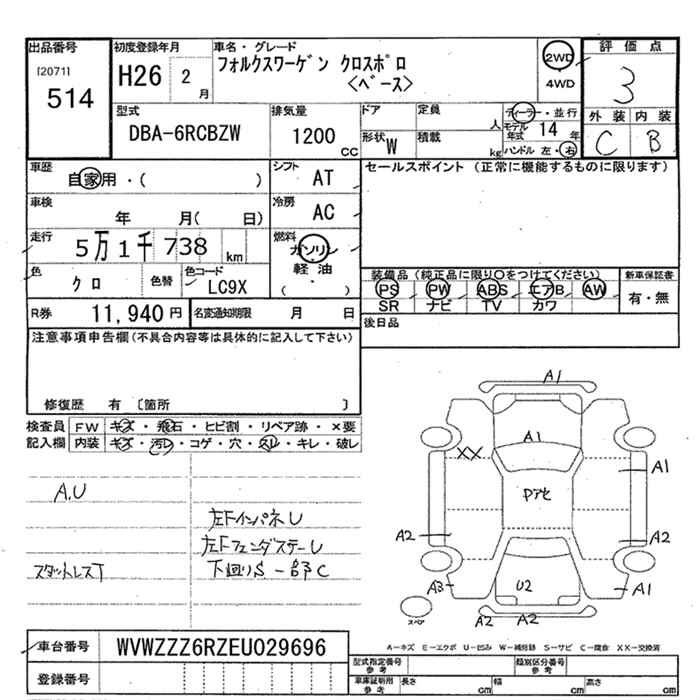 出品番号
[2071]
514
初度登録年月
H26 2 月
車名・グレード
フォルクスワーゲン クロスポロ
<ベース>
2WD
4WD
評価点
3
外装 内装
C B
型式
DBA-6RCBZW
排気量
1200 CC
ドア
定員 人
形状 W
積載 kg
ディーラー・並行
モデル年式 14 年
ハンドル 左・右
車歴
自家用・( )
シフト
AT
セールスポイント (正常に機能するものに限ります)
車検
年 月( 日)
冷房
AC
走行
5万1千738 km
燃料
ガソリン
軽油
( ・ )
色
クロ
色替
色コード
LC9X
装備品(純正品に限り○をつけてください)
PS PW ABS エアB AW
SR ナビ TV カワ
新車保証書
有・無
R券 11,940 円
名変通知期限 月 日
後日品
注意事項申告欄(不具合内容等は具体的に記入して下さい)
修復歴 有 〔箇所 〕
検査員 FW キズ・飛石・ヒビ割・リペア跡・×要
記入欄 内装 キズ・汚レ・コゲ・穴・スレ・キレ・破レ
A.U
左Fインパネ U
左Fフェンダステー U
スタットレスT
下廻りS 一部C
A1
A1
XX
A1
Pアセ
A2
A2
A3
U2
A1
スペア
A2 A2
A-キズ E-エクボ U-凹み W-補修跡 S-サビ C-腐食 XX-交換済
車台番号 WVWZZZ6RZEU029696
登録番号
型式指定番号
参考
類別区分番号
参考
車庫証明用
参考
長さ cm
幅 cm
高さ cm